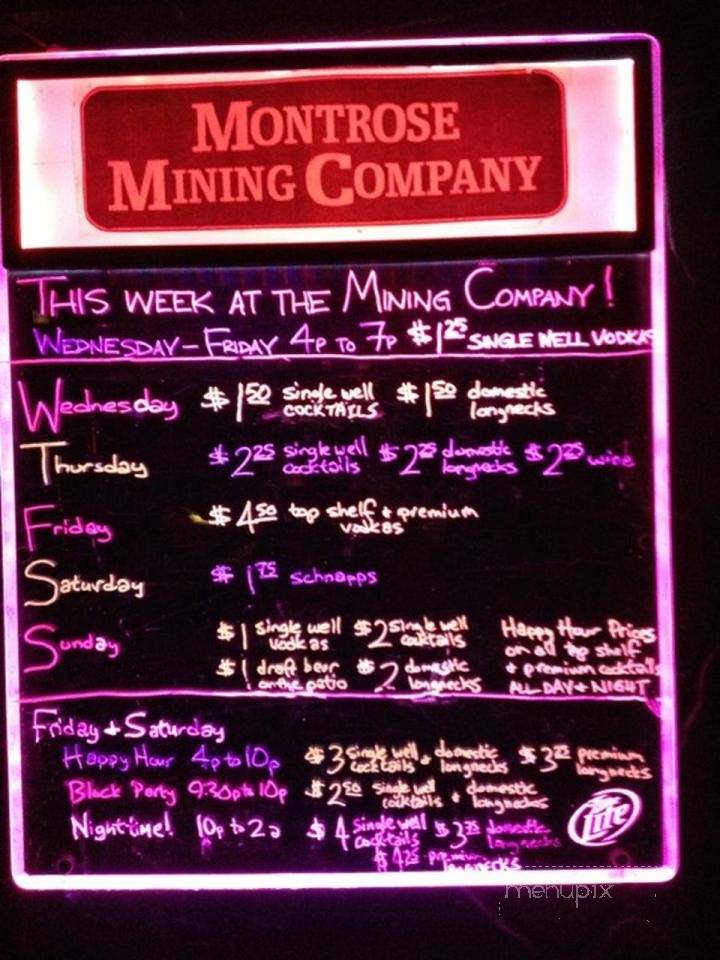 MONTROSE
MINING COMPANY
THIS WEEK AT THE MINING COMPANY!
WEDNESDAY - FRIDAY 4P TO 7P $1 25 SINGLE WELL VODKAS
Wednesday $1 50 single well COCKTAILS $1 50 domestic longnecks
Thursday $2 25 single well cocktails $2 25 domestic longnecks $2 25 wine
Friday $4 50 top shelf + premium vodkas
Saturday $1 75 schnapps
Sunday $1 single well vodkas $2 single well cocktails Happy Hour Prices on all top shelf
$1 draft beer on the patio $2 domestic longnecks + premium cocktails ALL DAY + NIGHT
Friday + Saturday
Happy Hour 4p to 10p $3 single well cocktails + domestic longnecks $3 premium longnecks
Black Party 9:30p to 10p $2 50 single well cocktails + domestic longnecks
Night-time! 10p to 2a $4 single well cocktails $3 75 domestic longnecks
$4 25 premium longnecks
Lite
menupix